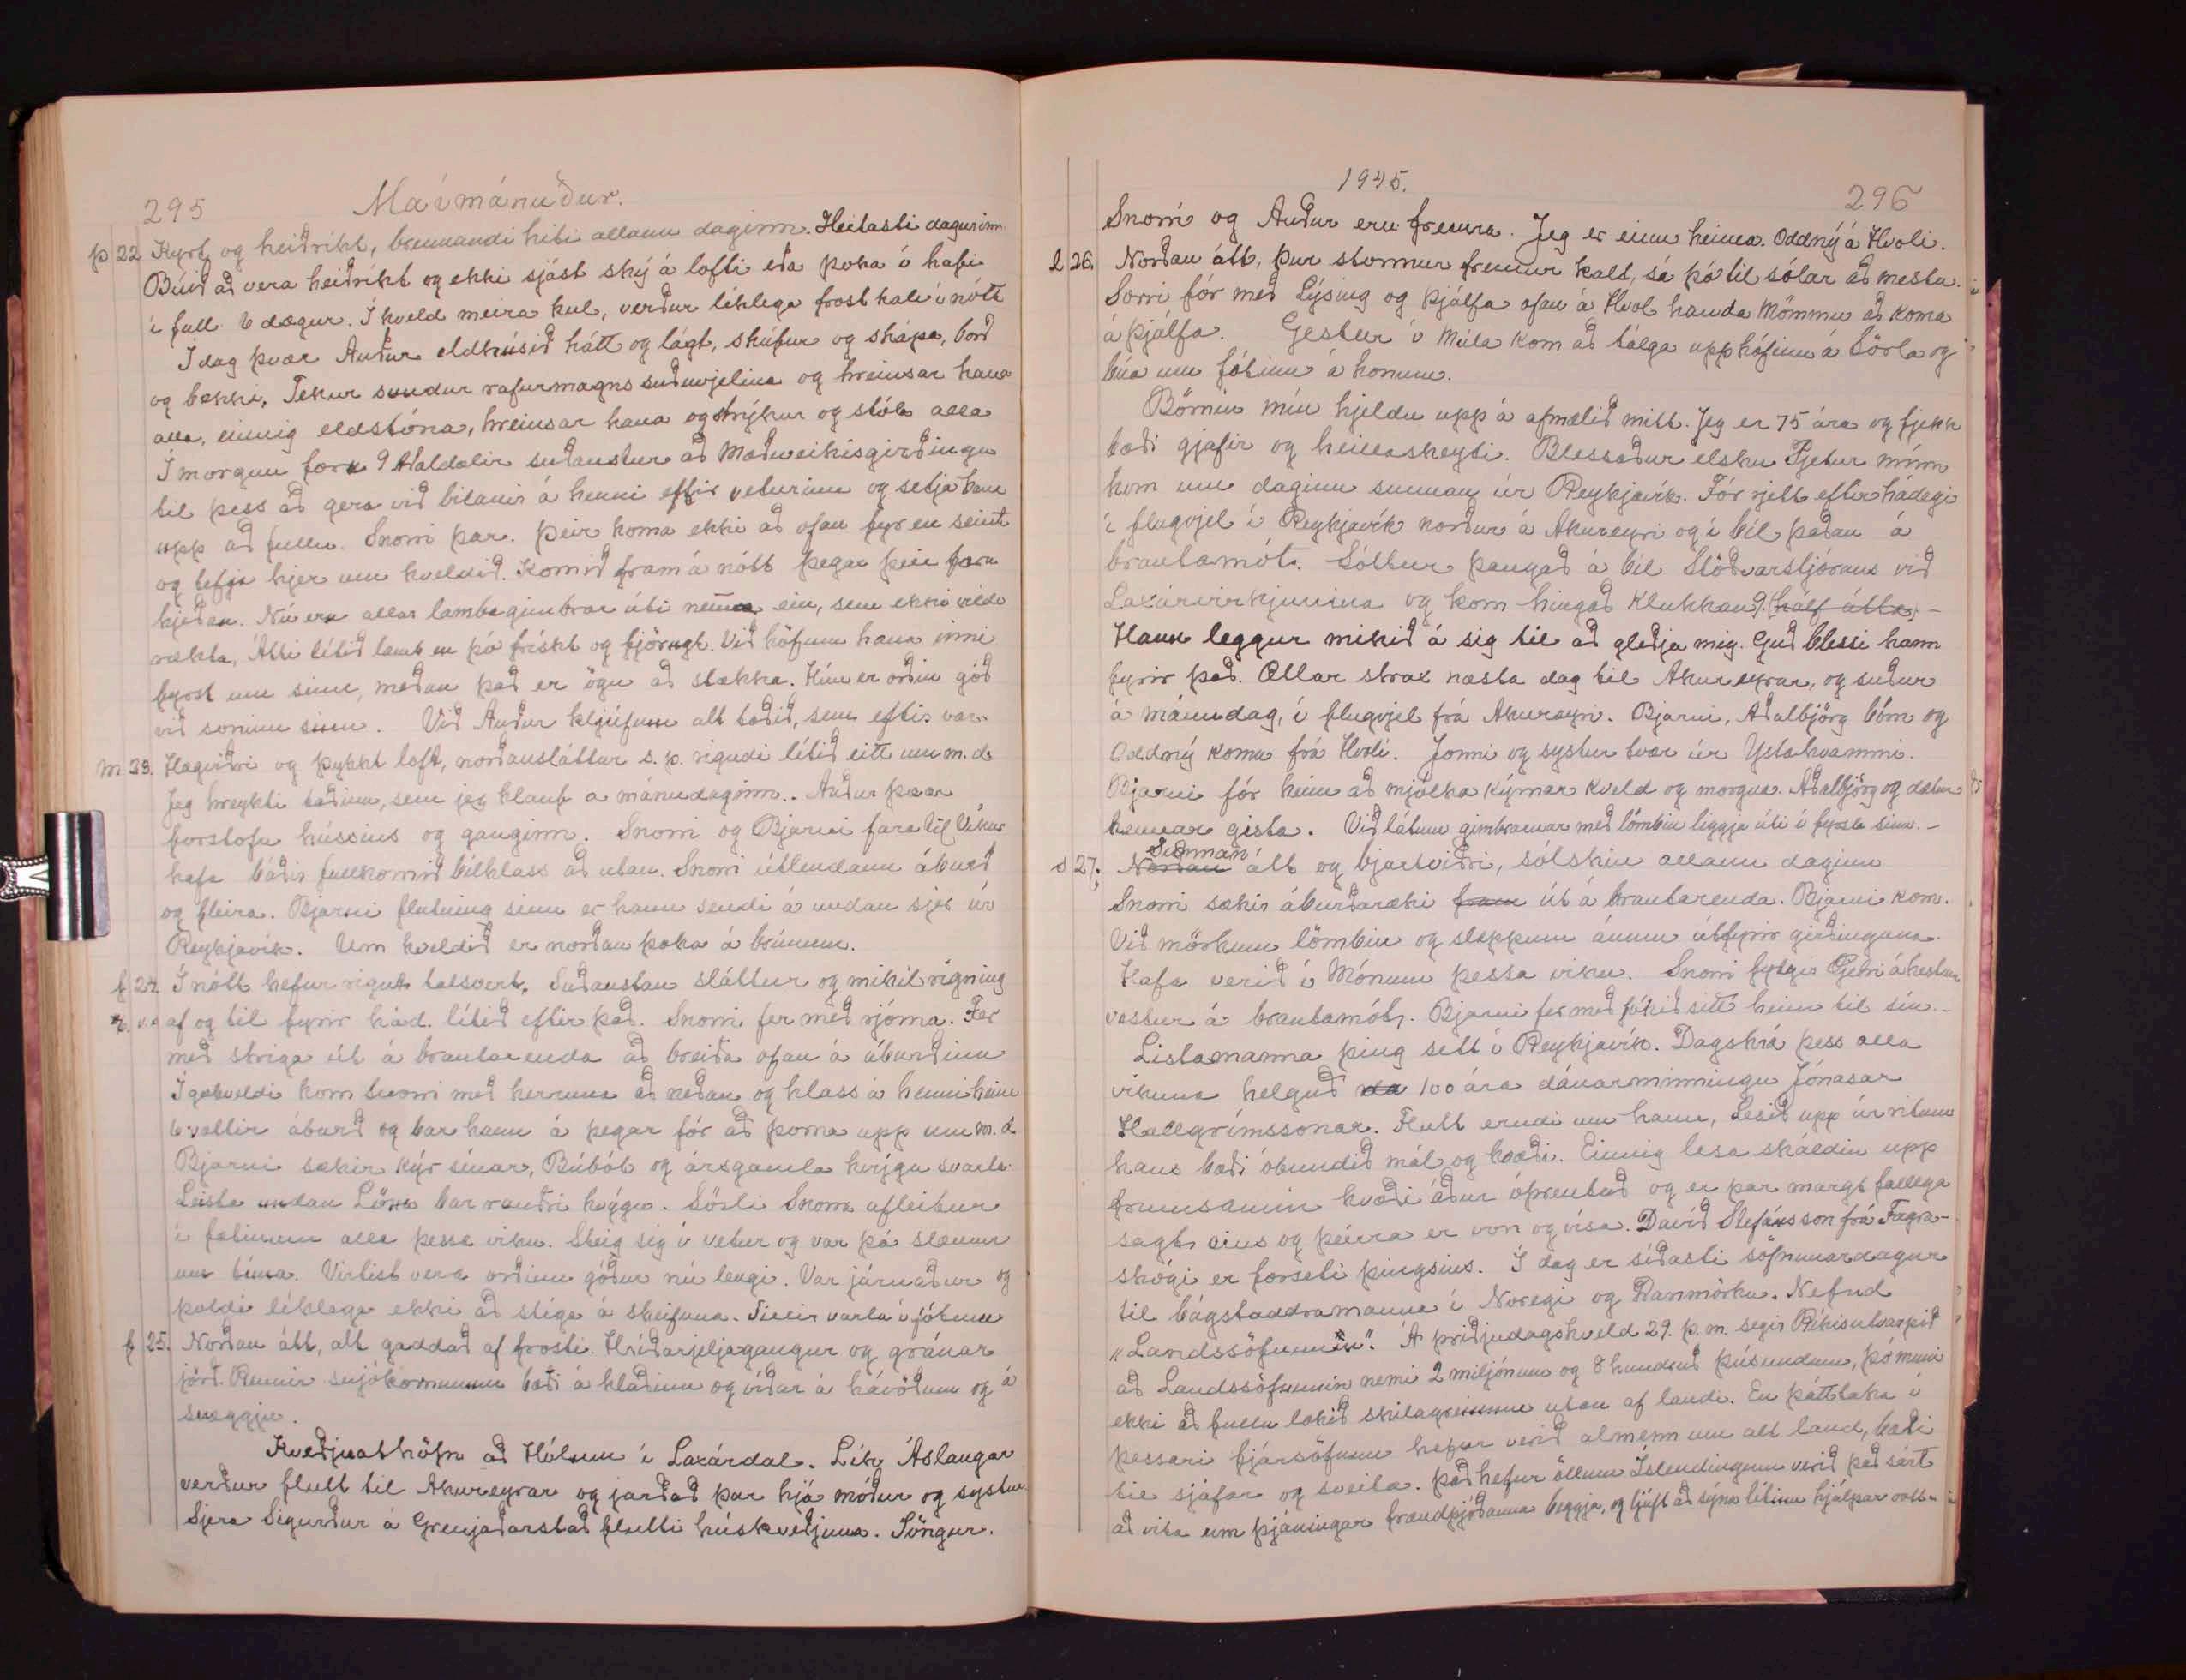 295 Maímánuður.
þ 22 Kyrt og heiðríkt, brennandi hiti allann daginn. Heitasti dagurinn
Búið að vera heiðríkt og ekki sjást ský á lofti eða þoka í hafi
í full 6 dægur. Í kveld meira kul, verður líklega frost kali í nótt
Í dag þvær Auður eldhúsið hátt og lágt, skúfur og skápa, borð
og bekki, Tekur sundur rafurmagns suðuvjelina og hreinsar hana
alla, einnig eldstóna, hreinsar hana og strýkur og stóla alla
Í morgun fara 9 Aðaldælir suðaustur að Mæðiveikisgirðingu
til þess að gera við bilanir á henni eftir veturinn og setja hana
upp að fullu. Snorri þar. Þeir koma ekki að ofan fyr en seint
og tefja hjer um kveldið. Komið fram á nótt þegar þeir fara
hjeðan. Nú eru allar lambgimbrar úti nema ein, sem ekki vildi
rækta, Átti lítið lamb en þó frískt og fjörugt. Við höfum hana inni
fyrst um sinn, meðan það er ögn að stækka. Hún er orðin góð
við soninn sinn. Við Auður kljúfum alt taðið, sem eftir var.
m 23. Hægviðri og þykkt loft, norðansláttur s.p. rigndi lítið eitt um m.d.
Jeg hreykti taðinu, sem jeg klauf a mánudaginn. Auður þvær
forstofu hússins og ganginn. Snorri og Bjarni fara til Víkur
hafa báðir fullkomið bílhlass að utan. Snorri útlendann áburð
og fleira. Bjarni flutning sinn er hann sendi á undan sjer úr
Reykjavík. Um kveldið er norðan þoka á brúnum.
f 24. Í nótt hefur rignt talsvert. Suðaustan sláttur og mikil rigning
af og til fyrir hád. lítið eftir það. Snorri fer með rjóma. Fer
með striga út á brautarenda að breiða ofan á áburðinn
Í gærkveldi kom Snorri með kerruna að neðan og hlass á henni heim
6 vættir áburð og bar hann á þegar fór að þorna upp um m.d.
Bjarni sækir kýr sínar, Búbót og ársgamla kvígu svarta
Leista undan Löng bar rauðri kvígu. Sörli Snorra afleitur
í fætinum alla þessa viku. Steig sig í vetur og var þá slæmur
um tíma. Virtist vera orðinn góður nú lengi. Var járnaður og
þoldi líklega ekki að stíga á skeifuna. Tillir varla í fótinn
f 25. Norðan átt, alt gaddað af frosti. Hríðarjeljagangur og gránar
jörð. Rennir snjókornunum bæði á hlaðinu og víðar á hávöðum og á
snöggju.
Kveðjuathöfn að Hólum í Laxárdal. Lík Áslaugar
verður flutt til Akureyrar og jarðað þar hjá móður og systur.
Sjera Sigurður á Grenjaðarstað flutti húskveðjuna. Söngur.
1945. 296
Snorri og Auður eru fremra. Jeg er einn heima. Oddný á Hvoli.
l 26. Norðan átt, þur stormur fremur kalt, sá þó til sólar að mestu.
Sorri fór með Lýsing og Þjálfa ofan á Hvol handa Mömmu að koma
á Þjálfa. Gestur í Múla kom að tálga upp hófinn á Sörla og
búa um fótinn á honum.
Börnin mín hjeldu upp á afmælið mitt. Jeg er 75 ára og fjekk
bæði gjafir og heillaskeyti. Blessaður elsku Pjetur minn
kom um daginn sunnan úr Reykjavík. Fór rjett eftir hádegi
í flugvjel í Reykjavík norður á Akureyri og í bíl þaðan á
brautamót. Sóttur þangað á bíl Stöðvarstjórans við
Laxárvirkjunina og kom hingað klukkan 9. (hálf átta) -
Hann leggur mikið á sig til að gleðja mig. Guð blessi hann
fyrir það. Ætlar strax næsta dag til Akureyrar, og suður
á mánudag, í flugvjel frá Akureyri. Bjarni, Aðalbjörg börn og
Oddný koma frá Hvoli. Jonni og systur tvær úr Ystahvammi.
Bjarni fór heim að mjólka kýrnar kveld og morgun. Aðalbjörg og dætur
hennar gista. Við látum gimbrarnar með lömbin liggja úti í fyrsta sinn. -
Sunnan
s 27. Norðan átt og bjartviðri, sólskin allann daginn
Snorri sækir áburðaræki fram út á brautarenda. Bjarni kom.
Við mörkum lömbin og sleppum ánum útfyrir girðinguna.
Hafa verið í Mónum þessa viku. Snorri fylgir Pjetri á hestum
vestur á brautamót. Bjarni fer með fólkið sitt heim til sín. -
Listamanna þing sett í Reykjavík. Dagskrá þess alla
vikuna helguð 100 ára dánarminningu Jónasar
Hallgrímssonar. Flutt erindi um hann, Lesið upp úr ritum
hans bæði óbundið mál og kvæði. Einnig lesa skáldin upp
frumsamin kvæði áður óprentuð og er þar margt fallega
sagt, eins og þeirra er von og vísa. Davíð Stefánsson frá Fagra-
skógi er forseti þingsins. Í dag er síðasti söfnunardagur
til bágstaddra manna í Noregi og Danmörku. Nefnd
„Landssöfnunin“. Á þriðjudagskveld 29. þ.m. segir Ríkisútvarpið
að Landssöfnunin nemi 2 miljónum og 8 hundruð þúsundum, þó muni
ekki að fullu lokið skilagreinum utan af landi. En þátttaka í
þessari fjársöfnun hefur verið almenn um alt land, bæði
til sjáfar og sveita. Það hefur öllum Íslendingum verið það sárt
að vita um þjáningar frændþjóðanna beggja, og ljúft að sýna lítinn hjálpar vott